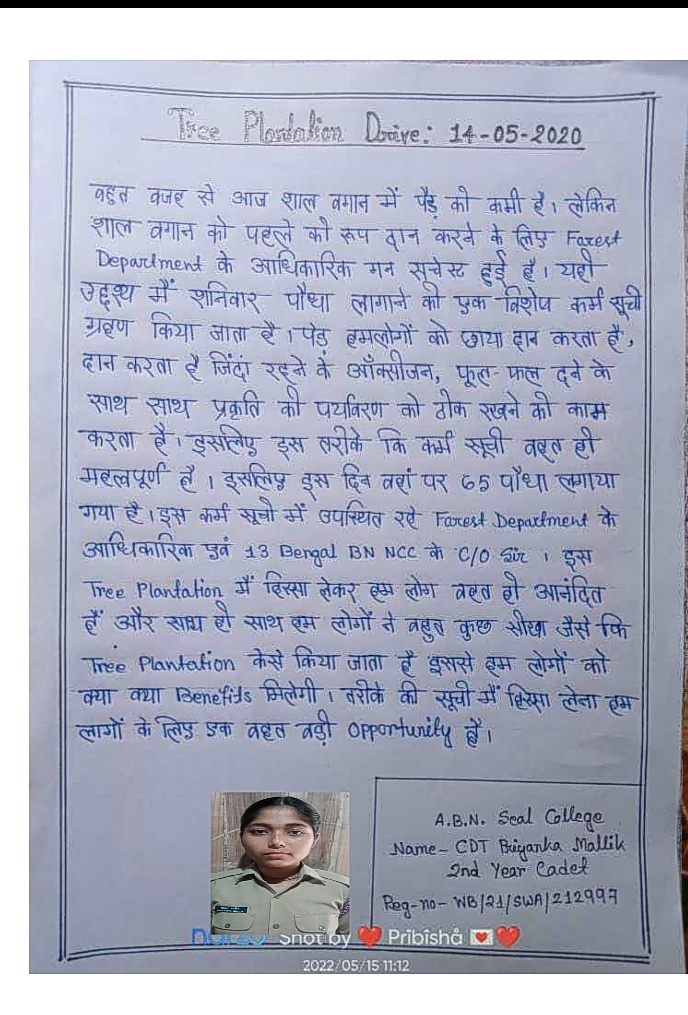 Tree Plantation Drive: 14-05-2020
वहुत वजह से आज शाल वगान में पैड़ की कमी है। लेकिन
शाल वगान को पहले की रूप दान करने के लिए Forest
Department के आधिकारिक गन सचेस्ट हुई है। यही
उद्दश्य मैं शनिवार पौधा लागाने की एक विशेष कर्म सूची
ग्रहण किया जाता है। पेड़ हमलोगों को छाया दान करता है,
दान करता है जिंदा रहने के ऑक्सीजन, फूल-फल देने के
साथ साथ प्रकृति की पर्यावरण को ठीक रखने की काम
करता है। इसलिए इस तरीके कि कर्म सूची वहुत ही
महत्वपूर्ण है। इसलिए इस दिन वहां पर 65 पौधा लगाया
गया है। इस कर्म सूची में उपस्थित रहे Forest Department के
आधिकारिक एवं 13 Bengal BN NCC के C/O Sir । इस
Tree Plantation में हिस्सा लेकर हम लोग वहुत ही आनंदित
हैं और साथ ही साथ हम लोगों ने वहुत कुछ सीखा जैसे कि
Tree Plantation केसे किया जाता है इससे हम लोगों को
क्या क्या Benefits मिलेगी। तरीके की सूची में हिस्सा लेना हम
लागों के लिए एक वहुत वड़ी opportunity है।
A.B.N. Seal College
Name- CDT Briyanka Mallik
2nd Year Cadet
Reg-no- WB/21/SWA/212997
Shot by ❤️ Pribishå 💌❤️
2022/05/15 11:12